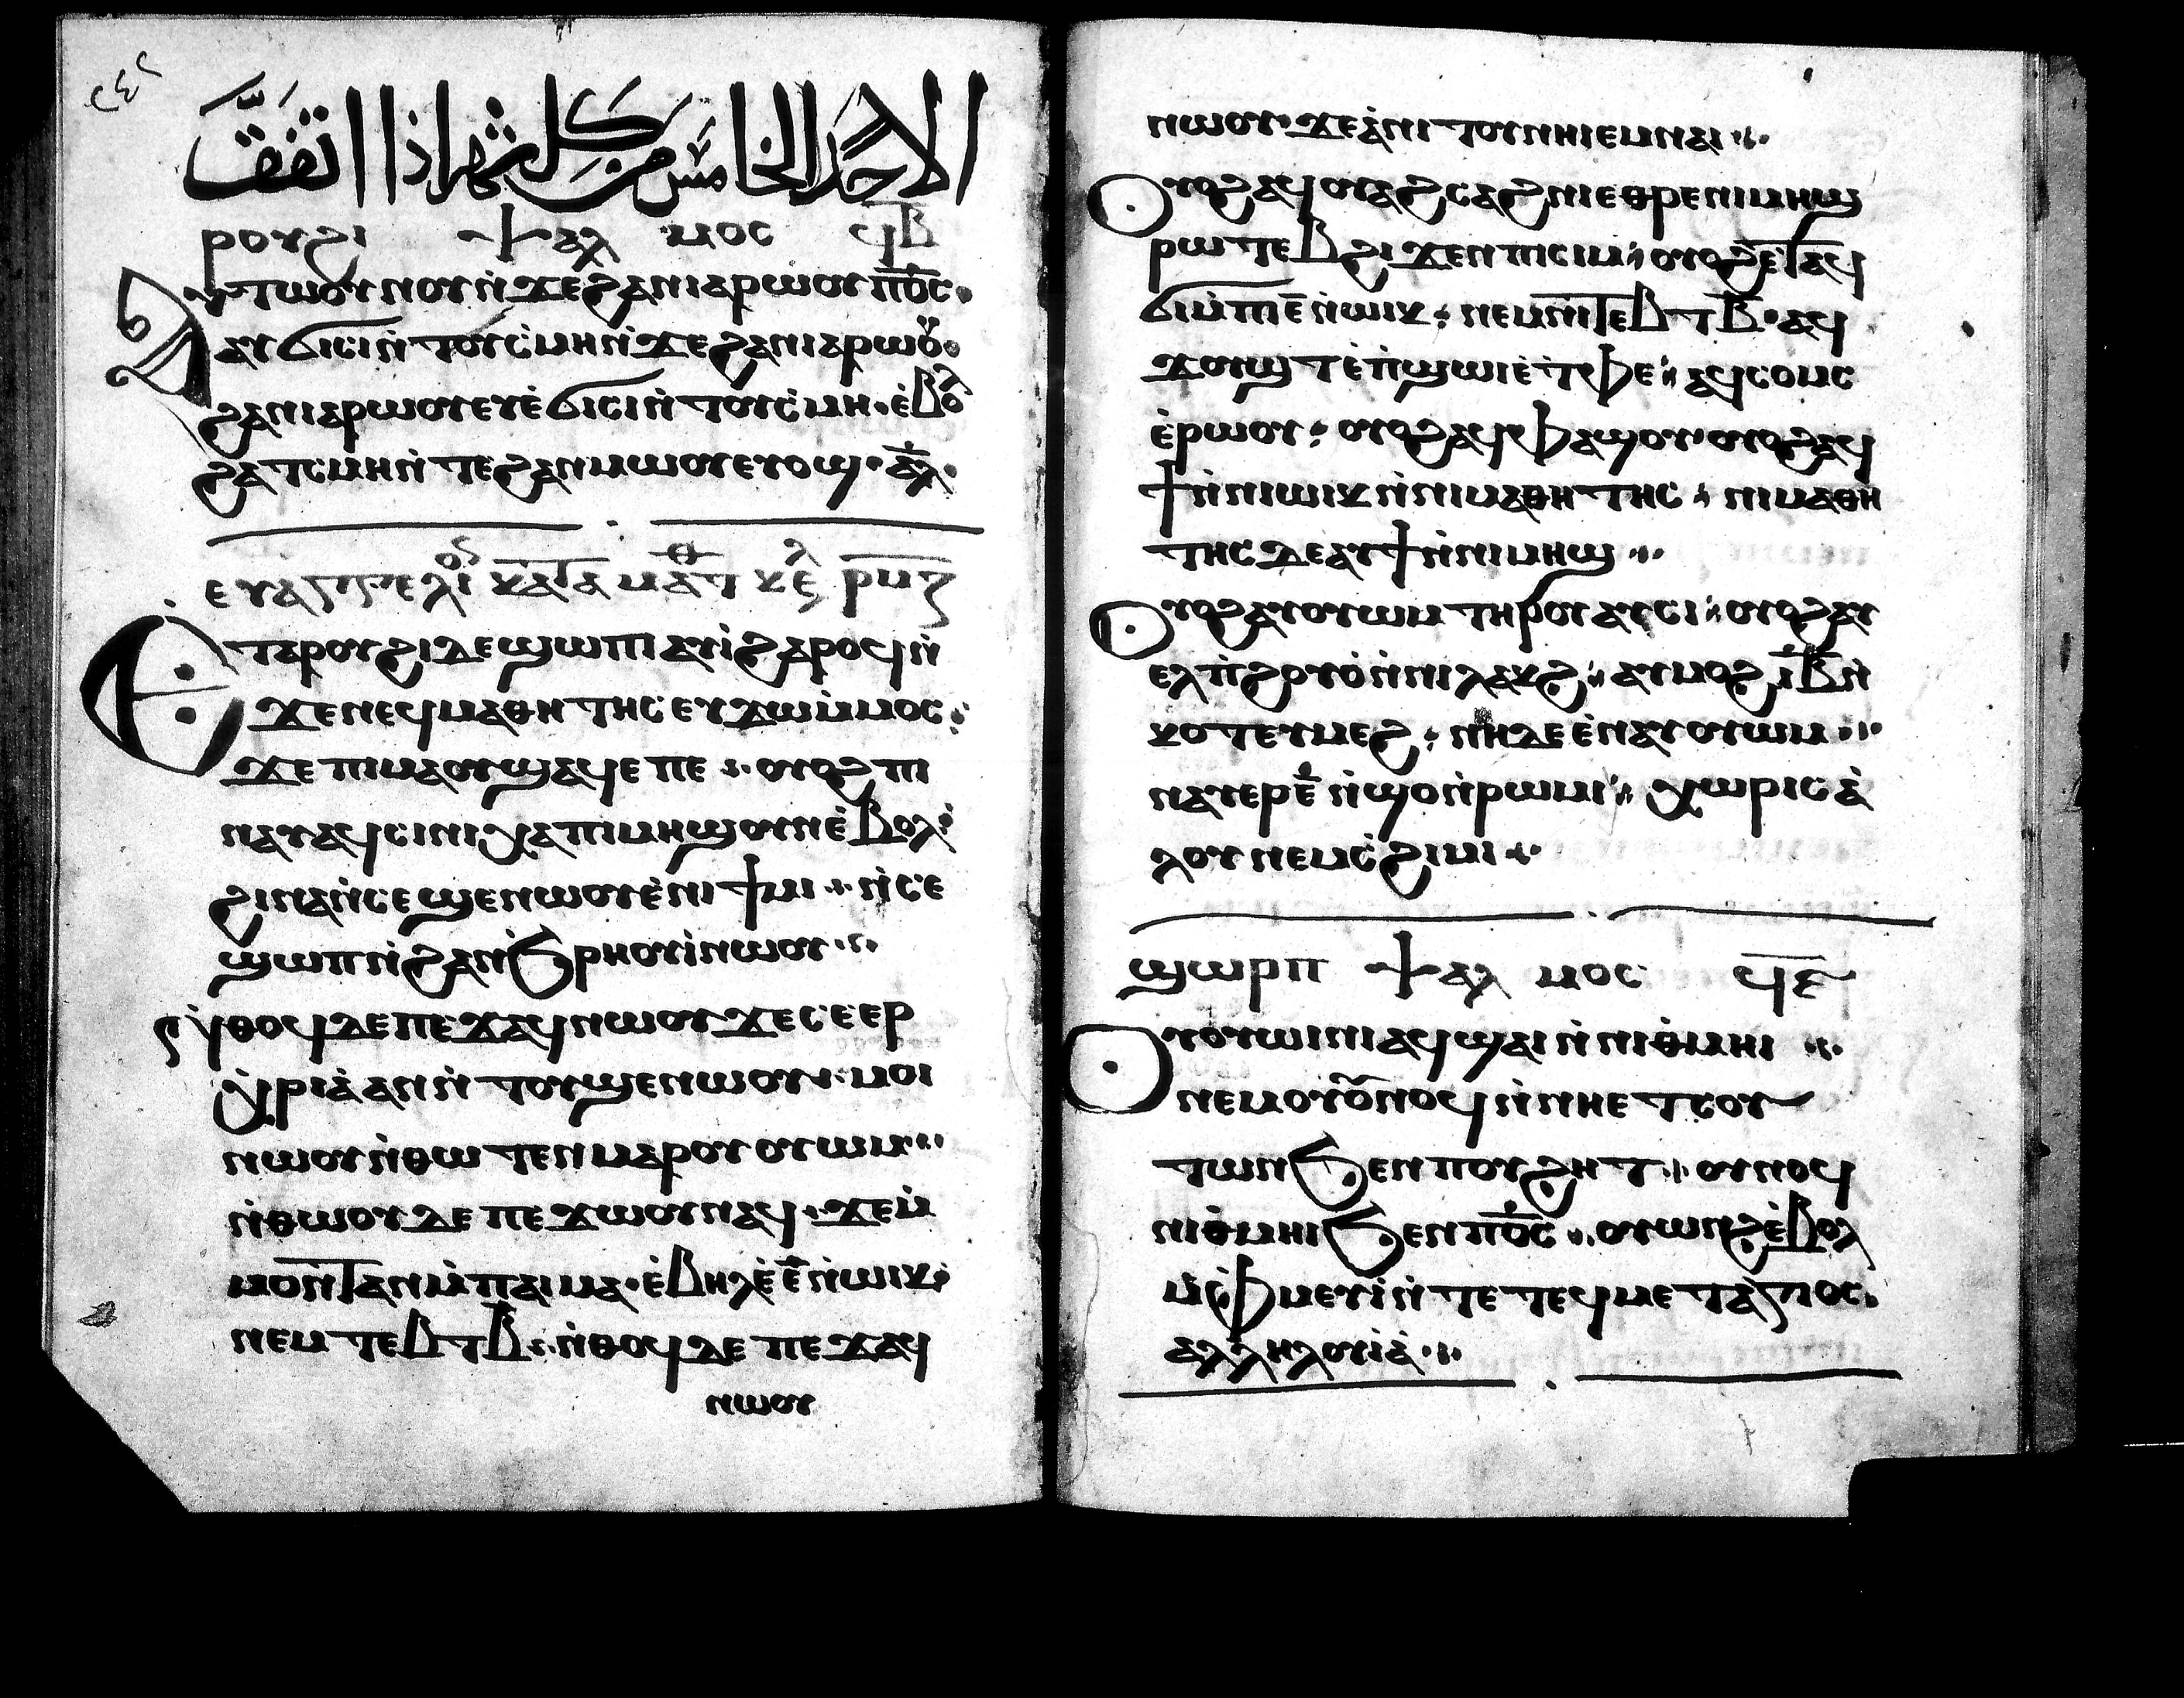 ٢٤٢
الاحد الخامس من كل شهر اذا اتفق
ⲣⲟⲩϩⲓ ⲯⲁⲗⲙⲟⲥ ϥ̅ⲃ̅
ⲁⲩⲧⲱⲟⲩⲛⲟⲩ ⲛ̀ϫⲉϩⲁⲛⲓⲁⲣⲱⲟⲩ ⲡ⳪·
ⲁⲩϭⲓⲥⲓ ⲛ̀ⲧⲟⲩⲥ̀ⲙⲏ ⲛ̀ϫⲉϩⲁⲛⲓⲁⲣⲱⲟⲩ·
ϩⲁⲛⲓⲁⲣⲱⲟⲩ ⲉⲩⲉ̀ϭⲓⲥⲓ ⲛ̀ⲧⲟⲩⲥ̀ⲙⲏ· ⲉ̀ⲃⲟⲗ
ϩⲁⲧⲥⲙⲏ ⲛ̀ⲧⲉϩⲁⲛⲙⲱⲟⲩ ⲉⲩⲟϣ· ⲁ̅ⲗ̅·
ⲉⲩⲁⲅⲅⲉⲗⲓⲟⲛ ⲕⲁⲧⲁ ⲙⲁⲑ ⲕⲉ̅ⲫ ⲣⲙⲍ
ⲉⲧⲁⲣⲟⲩϩⲓ ⲇⲉ ϣⲱⲡⲓ ⲁⲩⲓ̀ ϩⲁⲣⲟϥ ⲛ̀
ϫⲉⲛⲉϥⲙⲁⲑⲏⲧⲏⲥ ⲉⲩϫⲱ ⲙ̀ⲙⲟⲥ·
ϫⲉ ⲡⲓⲙⲁ ⲟⲩϣⲁϥⲉ ⲡⲉ ⲟⲩⲟϩ ⲡⲓ
ⲛⲁⲩ ⲁϥⲥⲓⲛⲓ ⲭⲁ ⲡⲓⲙⲏϣ ⲟⲩⲛ ⲉ̀ⲃⲟⲗ
ϩⲓⲛⲁ ⲛ̀ⲥⲉϣⲉⲛⲱⲟⲩ ⲉ̀ⲛⲓϯⲙⲓ ⲛ̀ⲥⲉ
ϣⲱⲡ ⲛ̀ϩⲁⲛϧⲣⲏⲟⲩⲓ̀ ⲛⲱⲟⲩ
ⲛ̀ⲑⲟϥ ⲇⲉ ⲡⲉϫⲁϥ ⲛⲱⲟⲩ ϫⲉ ⲥⲉⲉⲣ
ⲭ̀ⲣⲓⲁ̀ ⲁⲛ ⲛ̀ⲧⲟⲩϣⲉⲛⲱⲟⲩ· ⲙⲟⲓ
ⲛⲱⲟⲩ ⲛ̀ⲑⲱⲧⲉⲛ ⲙⲁⲣⲟⲩⲟⲩⲱⲙ
ⲛ̀ⲑⲱⲟⲩ ⲇⲉ ⲡⲉϫⲱⲟⲩ ⲛⲁϥ· ϫⲉ ⲙ̀
ⲙⲟⲛ̀ⲧⲁⲛ ⲙ̀ⲡⲁⲓⲙⲁ· ⲉ̀ⲃⲏⲗ ⲉ̀ ⲉ̅ ⲛ̀ⲱⲓⲕ
ⲛⲉⲙ ⲧⲉⲃⲧ ⲃ̅ ⲛ̀ⲑⲟϥ ⲇⲉ ⲡⲉϫⲁϥ
ⲛⲱⲟⲩ
ⲛⲱⲟⲩ· ϫⲉ ⲁ̀ⲛⲓⲧⲟⲩ ⲛⲏⲓ ⲉⲙⲛⲁⲓ
ⲟⲩⲟϩ ⲁϥⲟⲩⲁϩⲥⲁϩⲛⲓ ⲉⲑⲣⲉⲛⲓⲙⲏϣ
ⲣⲱⲧⲉⲃ ϩⲓϫⲉⲛ ⲡⲓⲥⲓⲙ ⲟⲩⲟϩ ⲉ̀ⲧⲁϥ
ϭⲓ ⲙ̀ⲡⲓ ⲉ̅ ⲛ̀ⲱⲓⲕ ⲛⲉⲙ ⲡⲓⲧⲉⲃⲧ ⲃ̅· ⲁϥ
ϫⲟⲩϣⲧ ⲉ̀ⲡ̀ϣⲱⲓ ⲉ̀ⲧ̀ⲫⲉ ⲁϥⲥⲟⲙⲥ
ⲉ̀ⲣⲱⲟⲩ ⲟⲩⲟϩ ⲁϥⲫⲁϣⲟⲩ ⲟⲩⲟϩ ⲁϥ
ϯ ⲛ̀ⲛⲓⲱⲓⲕ ⲛ̀ⲛⲓⲙⲁⲑⲏⲧⲏⲥ ⲛⲓⲙⲁⲑⲏ
ⲧⲏⲥ ⲇⲉ ⲁⲩϯ ⲛ̀ⲛⲓⲙⲏϣ
ⲟⲩⲟϩ ⲁⲩⲟⲩⲱⲙ ⲧⲏⲣⲟⲩ ⲁⲩⲥⲓ ⲟⲩⲟϩ ⲁⲩ
ⲉⲗⲡ̀ϩⲟⲩⲟ̀ ⲛ̀ⲛⲓⲗⲁⲕϩ ⲁⲩⲙⲟϩ ⲓ̅ⲃ̅ ⲛ̀
ⲕⲟⲧ ⲉⲩⲙⲉϩ ⲛⲏ ⲇⲉ ⲉ̀ⲛⲁⲩⲟⲩⲱⲙ
ⲛⲁⲩⲉⲣ ⲉ̅ ⲛ̀ϣⲟ ⲛ̀ⲣⲱⲙⲓ ⲭⲱⲣⲓⲥ ⲁ̀
ⲗⲟⲩ ⲛⲉⲙ ⲥ̀ϩⲓⲙⲓ
ϣⲱⲣⲡ ⲯⲁⲗⲙⲟⲥ ϥ̅ⲋ̅
ⲟⲩⲟⲩⲱⲓⲛⲓ ⲁϥϣⲁⲓ ⲛ̀ⲛⲓⲑ̀ⲙⲏⲓ
ⲛⲉⲙ ⲟⲩⲟⲩⲛⲟϥ ⲛ̀ⲛⲏⲉⲧⲥⲟⲩ
ⲧⲱⲛ ϧⲉⲛ ⲡⲟⲩϩⲏⲧ ⲟⲩⲛⲟϥ
ⲛⲓⲑ̀ⲙⲏⲓ ϧⲉⲛ ⲡ⳪ ⲟⲩⲱⲛϩ ⲉ̀ⲃⲟⲗ
ⲙ̀ⲫ̀ⲙⲉⲩⲓ̀ ⲛ̀ⲧⲉ ⲧⲉϥⲙⲉⲧⲁ̀ⲅⲓⲟⲥ
ⲁⲗⲗⲏⲗⲟⲩⲓⲁ̀